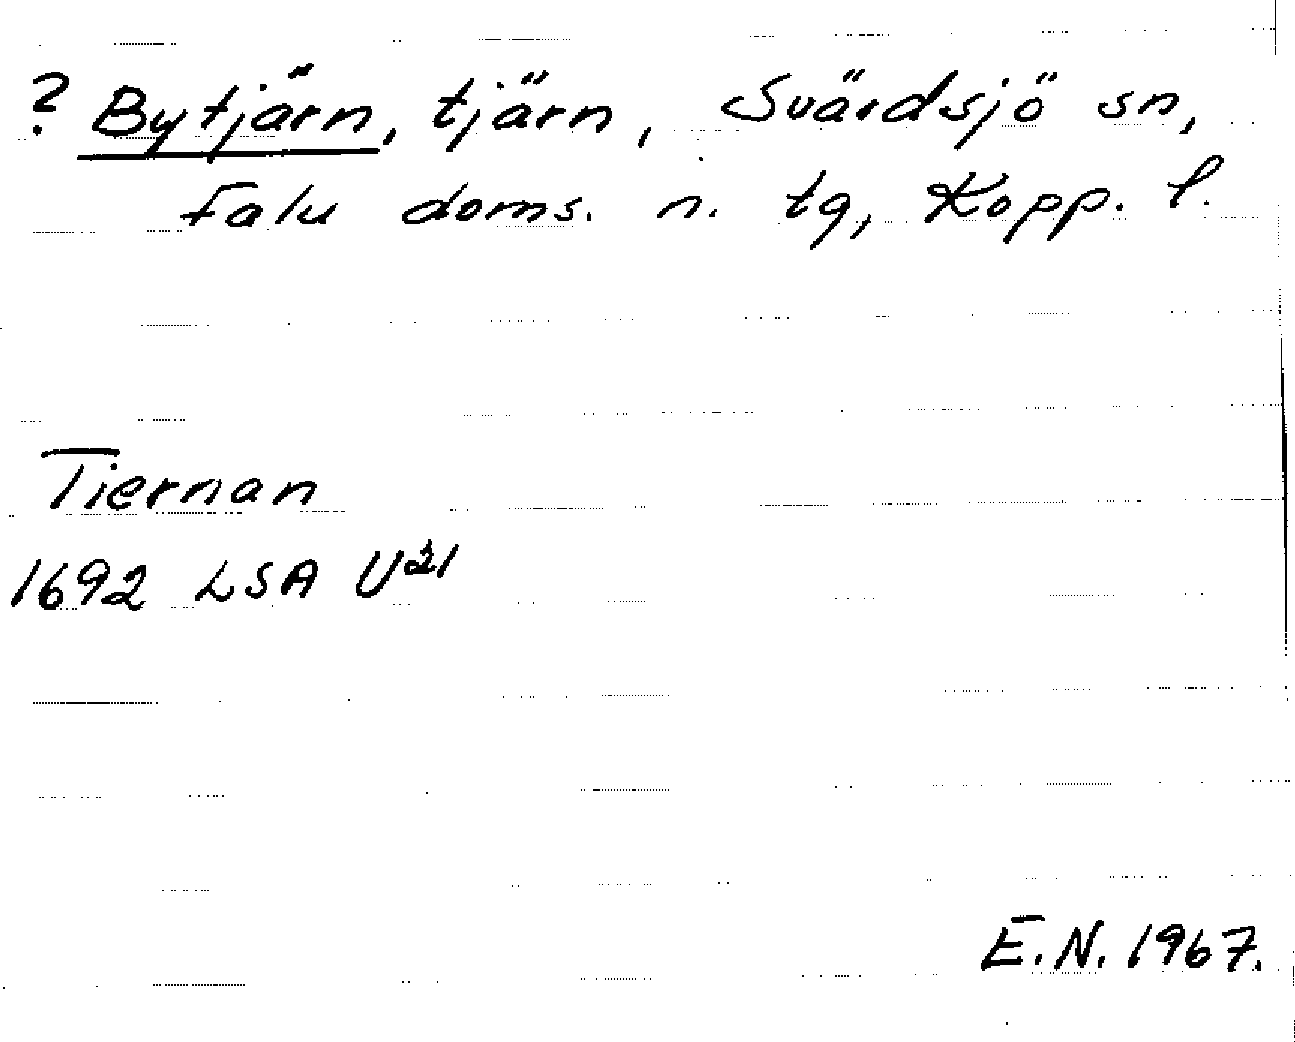 ? Bytjärn, tjärn, Svärdsjö sn,
Falu doms. n. tg, Kopp. l.
Tiernan
1692 LSA U21
E.N. 1967.